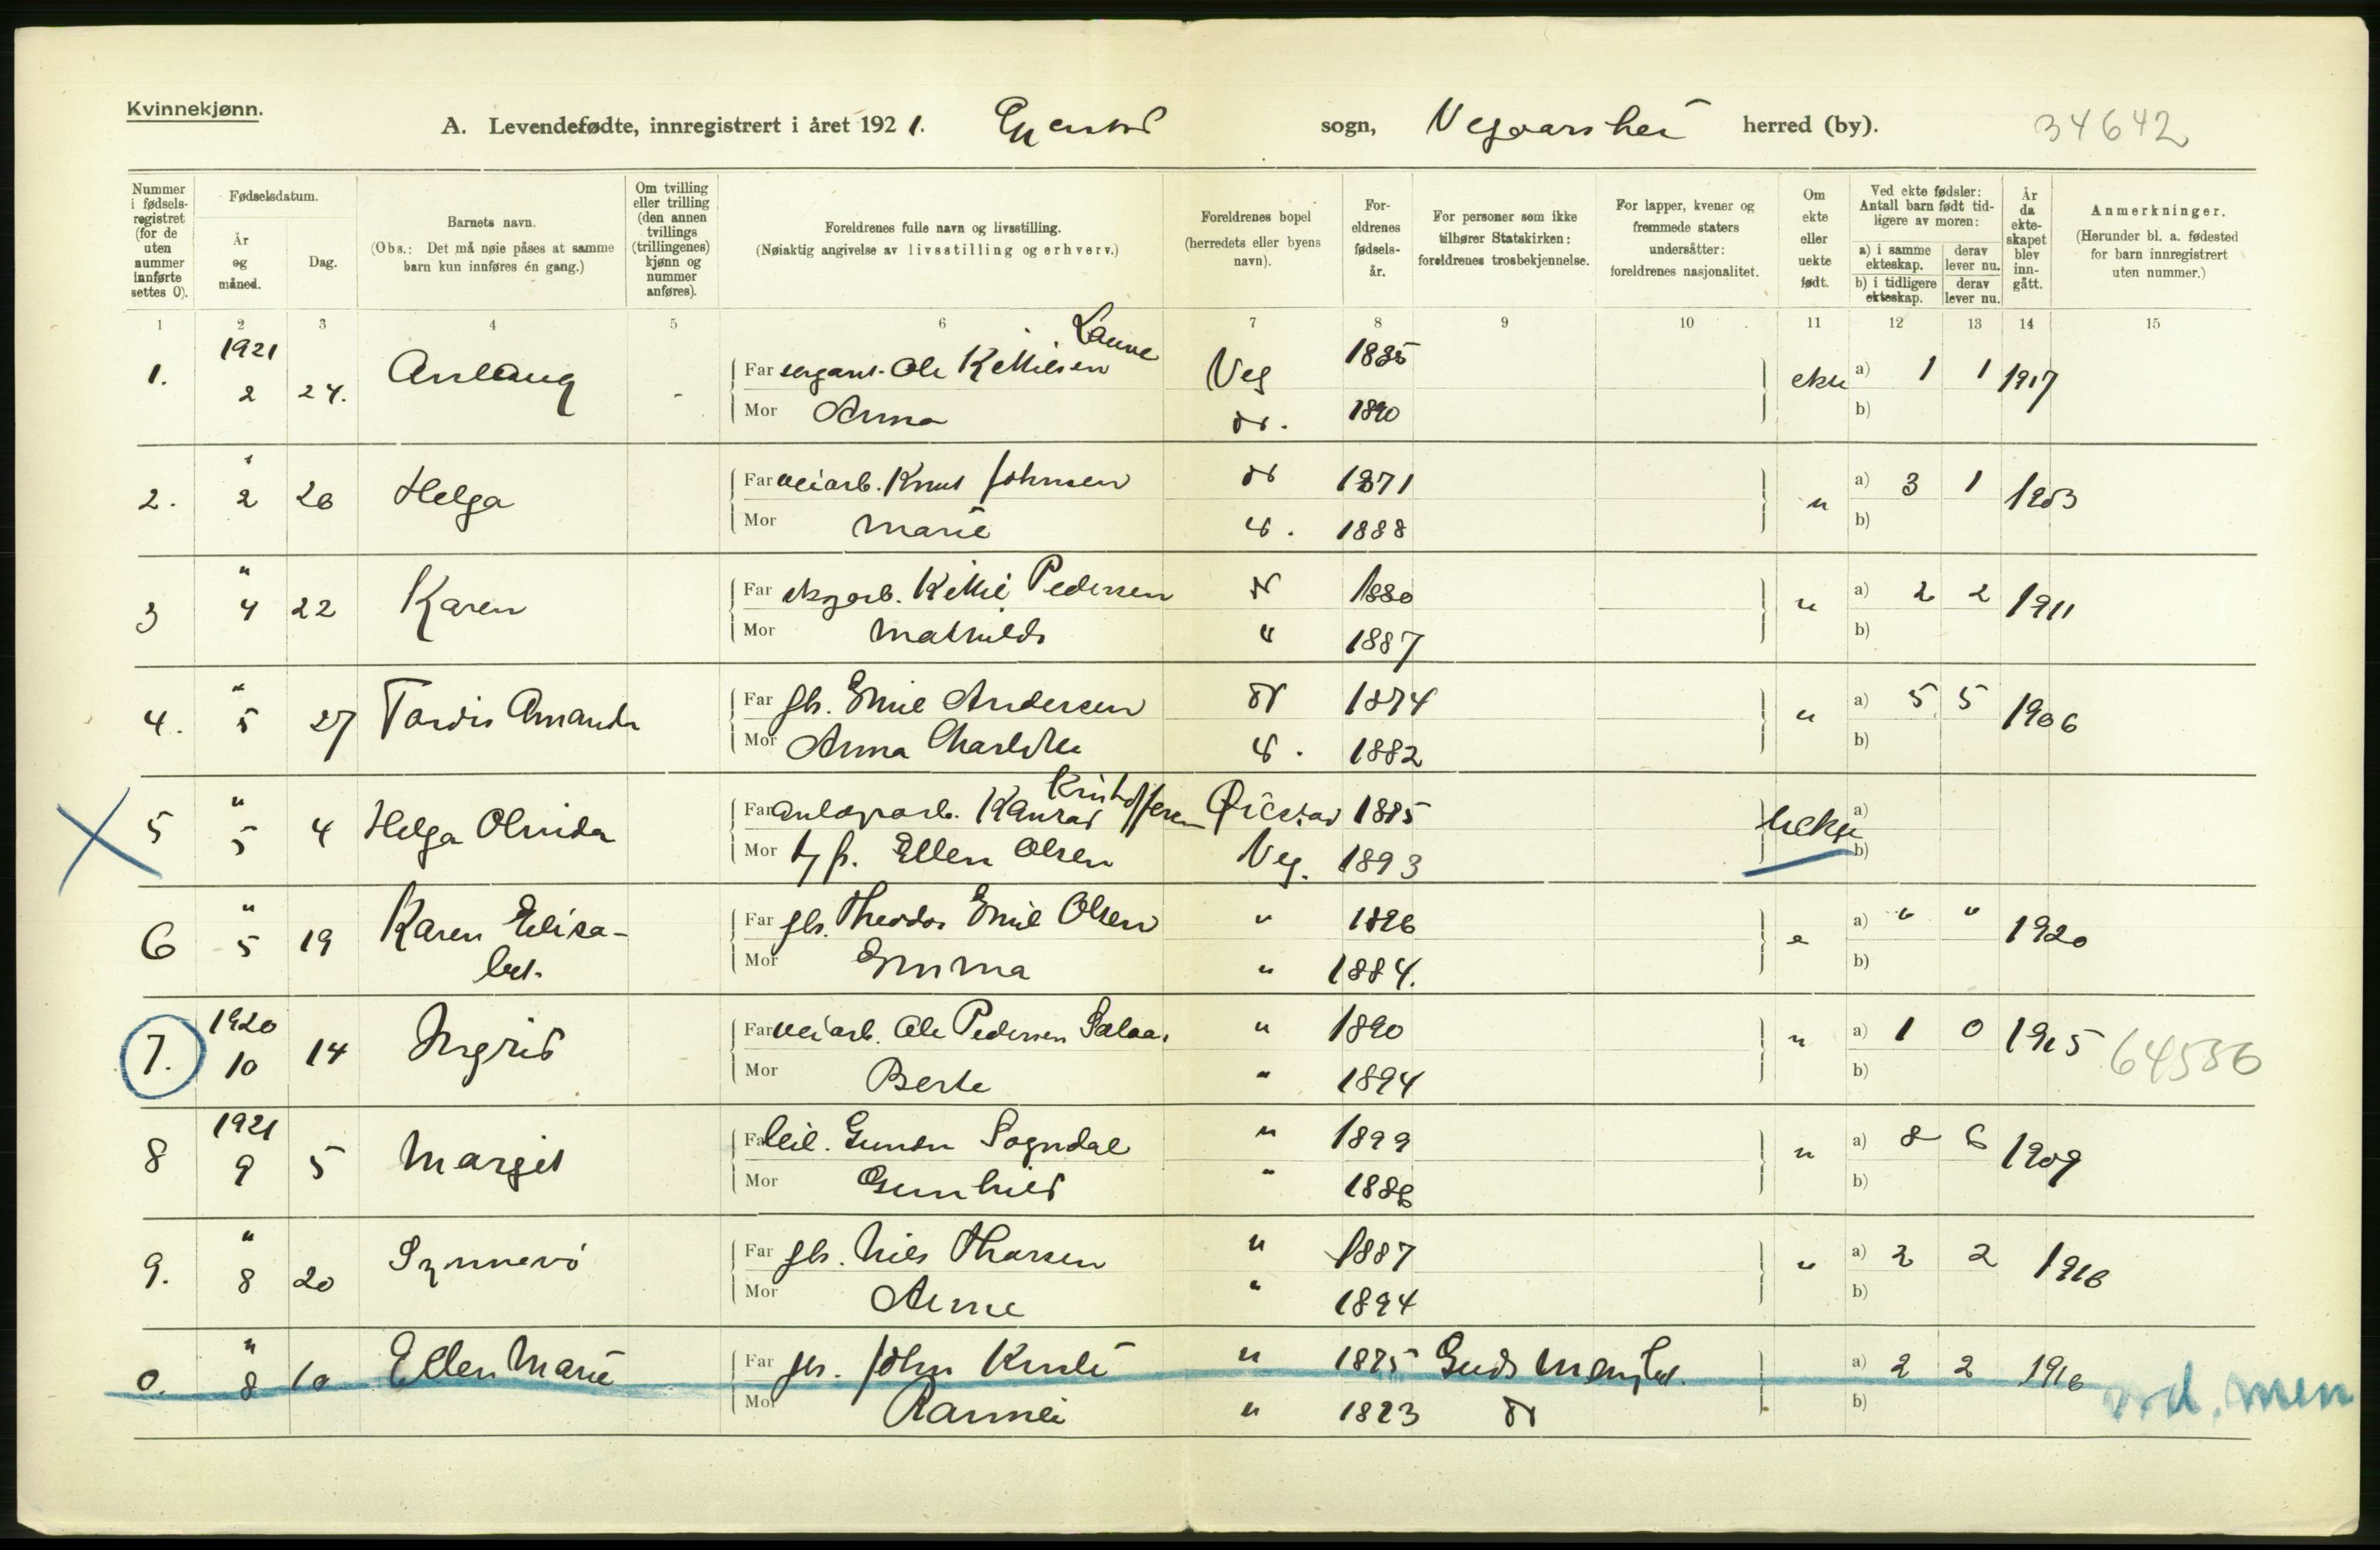 Kvinnekjønn.
A. Levendefødte, innregistrert i året 1921. Gjerstad sogn, Vegaarshei herred (by). 34642
Nummer i fødsels-registret (for de uten nummer innførte settes 0).
Fødselsdatum.
År og måned.
Dag.
Barnets navn.
(Obs.: Det må nøie påses at samme barn kun innføres én gang.)
Om tvilling eller trilling (den annen tvillings (trillingenes) kjønn og nummer anføres).
Foreldrenes fulle navn og livsstilling.
(Nøiaktig angivelse av livsstilling og erhverv.)
Foreldrenes bopel (herredets eller byens navn).
For-eldrenes fødsels-år.
For personer som ikke tilhører Statskirken: foreldrenes trosbekjennelse.
For lapper, kvener og fremmede staters undersåtter: foreldrenes nasjonalitet.
Om ekte eller uekte født.
Ved ekte fødsler: Antall barn født tid-ligere av moren:
a) i samme ekteskap.
derav lever nu.
b) i tidligere ekteskap.
derav lever nu.
År da ekte-skapet blev inn-gått.
Anmerkninger.
(Herunder bl. a. fødested for barn innregistrert uten nummer.)
1 2 3 4 5 6 7 8 9 10 11 12 13 14 15
1. 1921 2 24. Aslaug - Far sergant. Ole Kittilsen Veg 1885 ekte a) 1 1 1917
Mor Anna do. 1890 b)
2. " 2 26 Helga Far veiarb. Knut Johnsen do 1871 " a) 3 1
Mor Marie do. 1888 b)
3 " 4 22 Karen Far skogarb. Kittil Pedersen do 1880 " a) 2 2 1911
Mor Mathilde " 1887 b)
4. " 5 27 Tordis Amanda Far gb. Emil Andersen do 1874 " a) 5 5 1906
Mor Anna Charlotte do. 1882 b)
5 " 5 4 Helga Olvida Far anlægsarb. Konrad Kristoffersen Øiestad 1885 uekte a)
Mor Ellen Olsen Veg. 1893 b)
6 " 5 19 Karen Elisa-bet. Far gb. Theodor Emil Olsen " 1896 e a) " " 1920
Mor Emma " 1884. b)
7. 1920 10 14 Ingrid Far veiarb. Ole Pedersen " 1890 " a) 1 0 1915
Mor Berte " 1894 b)
8 1921 9 5 Margit Far leil. Gunder Sogndal " " a) 8 6 1909
Mor Gunhild " b)
9. " 8 20 Synnevø Far gb. Nils Tharsen " 1887 " a) 2 2 1916
Mor Anne " 1894 b)
0. " 8 10 Ellen Marie Far gb. John " 1875 Guds Menighed. a) 2 2 1916
Mor " do b)